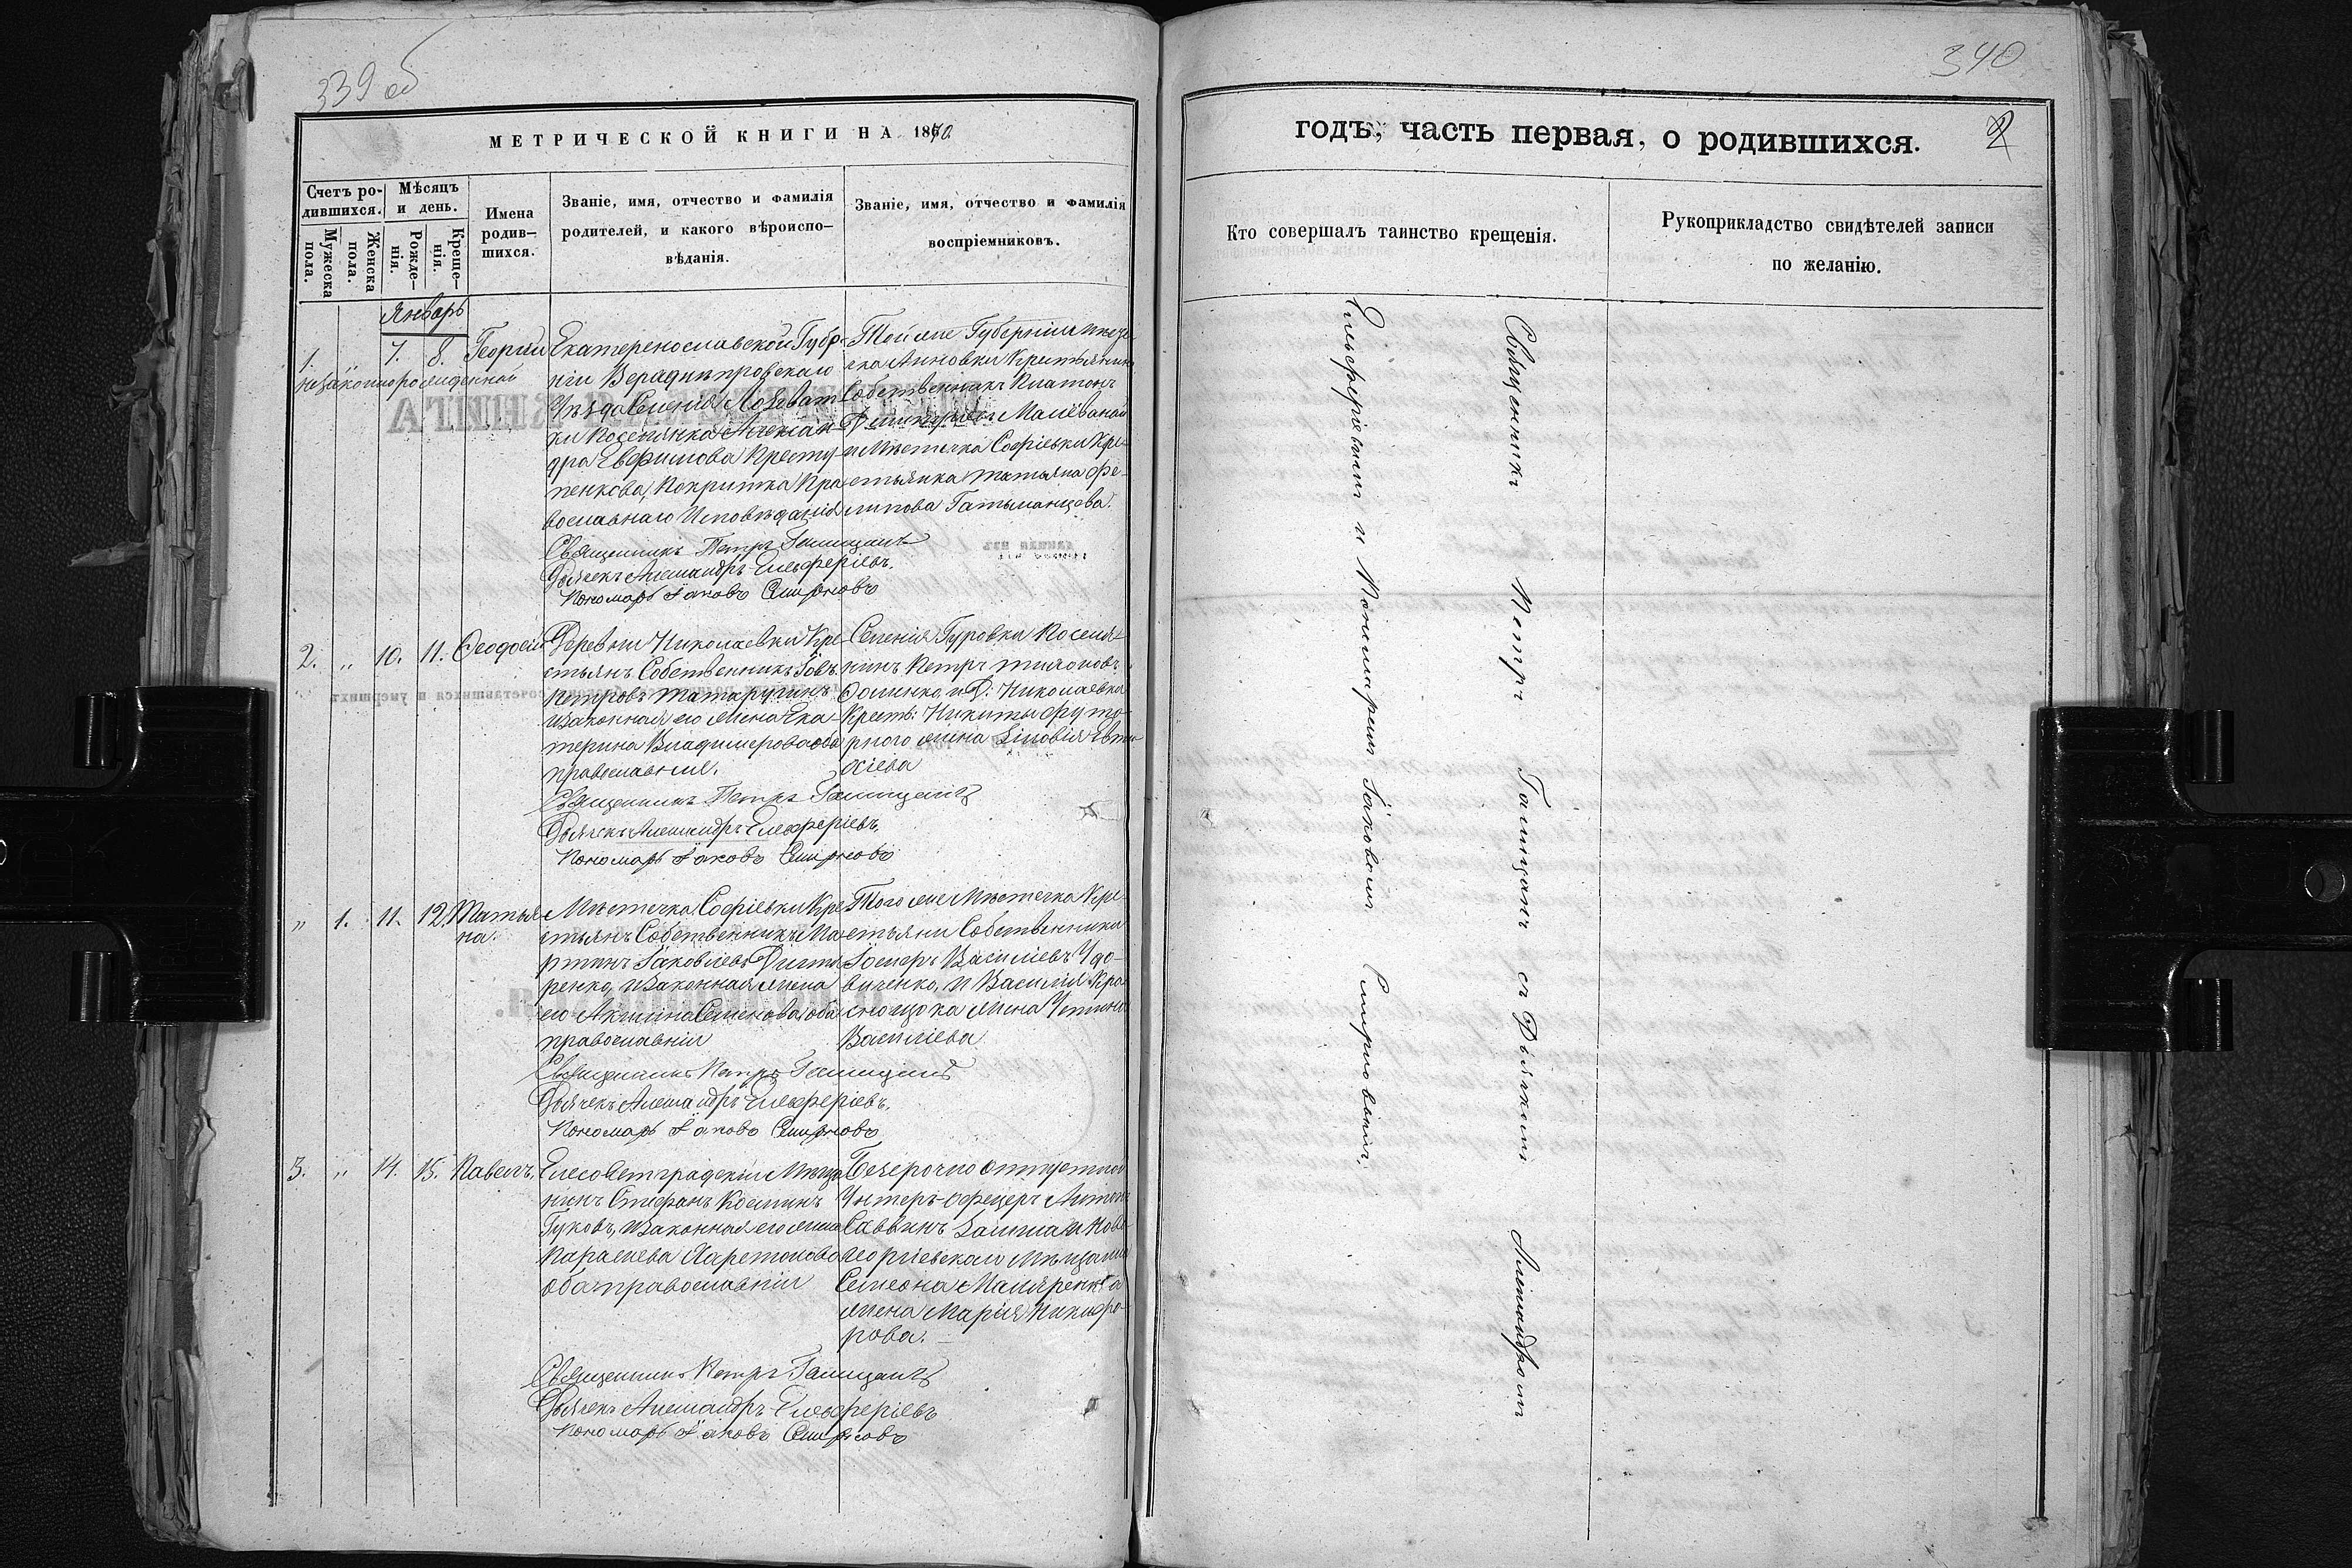 339 об
МЕТРИЧЕСКОЙ КНИГИ НА 1870
Счетъ ро-
дившихся.
Мужеска
пола.
Женска
пола.
Мѣсяцъ
и день.
Рожде-
нія.
Креще-
нія.
Имена
родив-
шихся.
Званіе, имя, отчество и фамилія
родителей, и какого вѣроиспо-
вѣданія.
Званіе, имя, отчество и фамилія
воспріемниковъ.
Январь
1. „ 7. 8. Георгій
незаконнорожденный
Екатеренославской Губер-
ніи Верхднѣпровскаго
Уѣзда Селенія Лозоват
ки Поселянка Алексан-
дра Евфимова
Покритка Пра
вославнаго Исповѣданія
Той же Губерніи
Крестьянинъ
Собственникъ Платонъ
Димитріевъ
и Мѣстечка Софіевки Кре-
стьянка Татьяна Фи-
липова
Священникъ Петръ Галицкій
Дьячекъ Александръ Елевферіевъ.
Пономарь Іаковъ Смирновъ
2. „ 10. 11. Ѳеодосій
Деревни Николаевки Кре-
стьянъ Собственникъ Іовъ
Петровъ Татаругинъ
и законная его жена Ека-
терина Владимерова оба
православніе.
Селенія Гуровки Поселя-
нинъ Петръ
и Д: Николаевки
Крест: Никиты
жена Зиновія Евти-
хіева
Священникъ Петръ Галицкій
Дьячекъ Александръ Елевферіевъ.
Пономарь Іаковъ Смирновъ
„ 1. 11. 12. Татья-
на.
Мѣстечка Софіевки Кре
стьянъ Собственникъ Ма
ртинъ Іаковлевъ Дигти
ренко, и законная жена
его Акилина Семенова оба
православніи
Того же Мѣстечка Кре-
стьяни Собственники
Василіевъ Удо-
виченко, и Василія Кра-
снощока жена Устинія
Василіева
Священникъ Петръ Галицкій
Дьячекъ Александръ Елевферіевъ.
Пономарь Іаковъ Смирновъ
3. „ 14. 15. Павелъ.
Елесоветградскій Мѣща
нинъ Стефанъ Косминъ
Гуковъ, и законная его жена
Параскева Харетонова
оба православніи
Безсрочно отпустной
Унтеръ-офецеръ Антонъ
Саввинъ и Ново
георгіевскаго Мѣщанина
Семеона
жена Марія Никифо-
рова.
Священникъ Петръ Галицкій
Дьячекъ Александръ Елевферіевъ
Пономарь Іаковъ Смирновъ
340
годъ, часть первая, о родившихся. 2
Кто совершалъ таинство крещенія.
Рукоприкладство свидѣтелей записи
по желанію.
Священникъ Петръ Галицкій съ Дьячкомъ Александромъ
Елевферіевымъ и Пономаремъ Іаковомъ Смирновымъ.